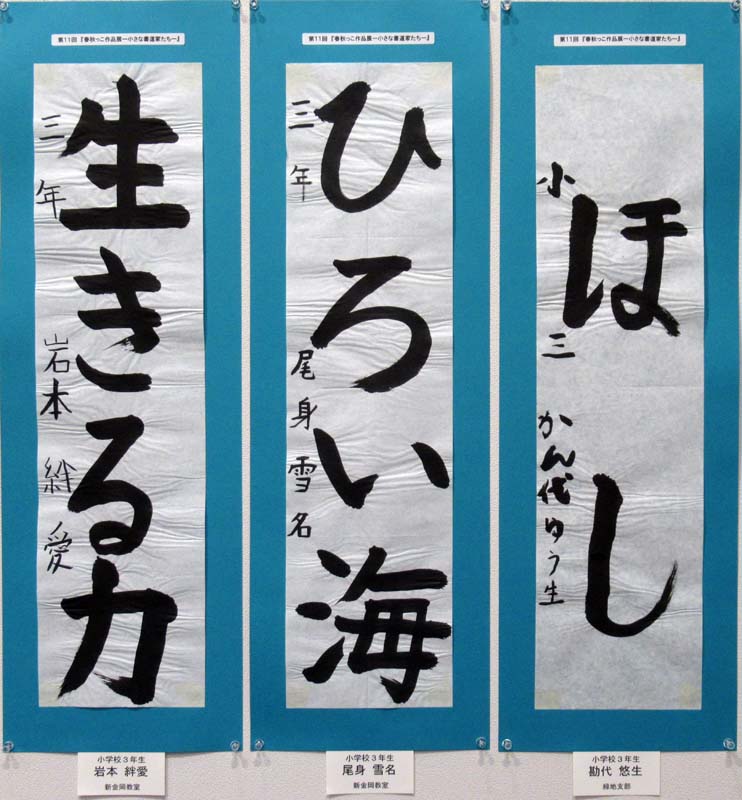 第11回『春秋っこ作品展ー小さな書道家たちー』
生きる力
三年 岩本 絆愛
小学校3年生
岩本 絆愛
新金岡教室
第11回『春秋っこ作品展ー小さな書道家たちー』
ひろい海
三年 尾身雪名
小学校3年生
尾身 雪名
新金岡教室
第11回『春秋っこ作品展ー小さな書道家たちー』
ほし
小三 かん代ゆう生
小学校3年生
勘代 悠生
緑地支部